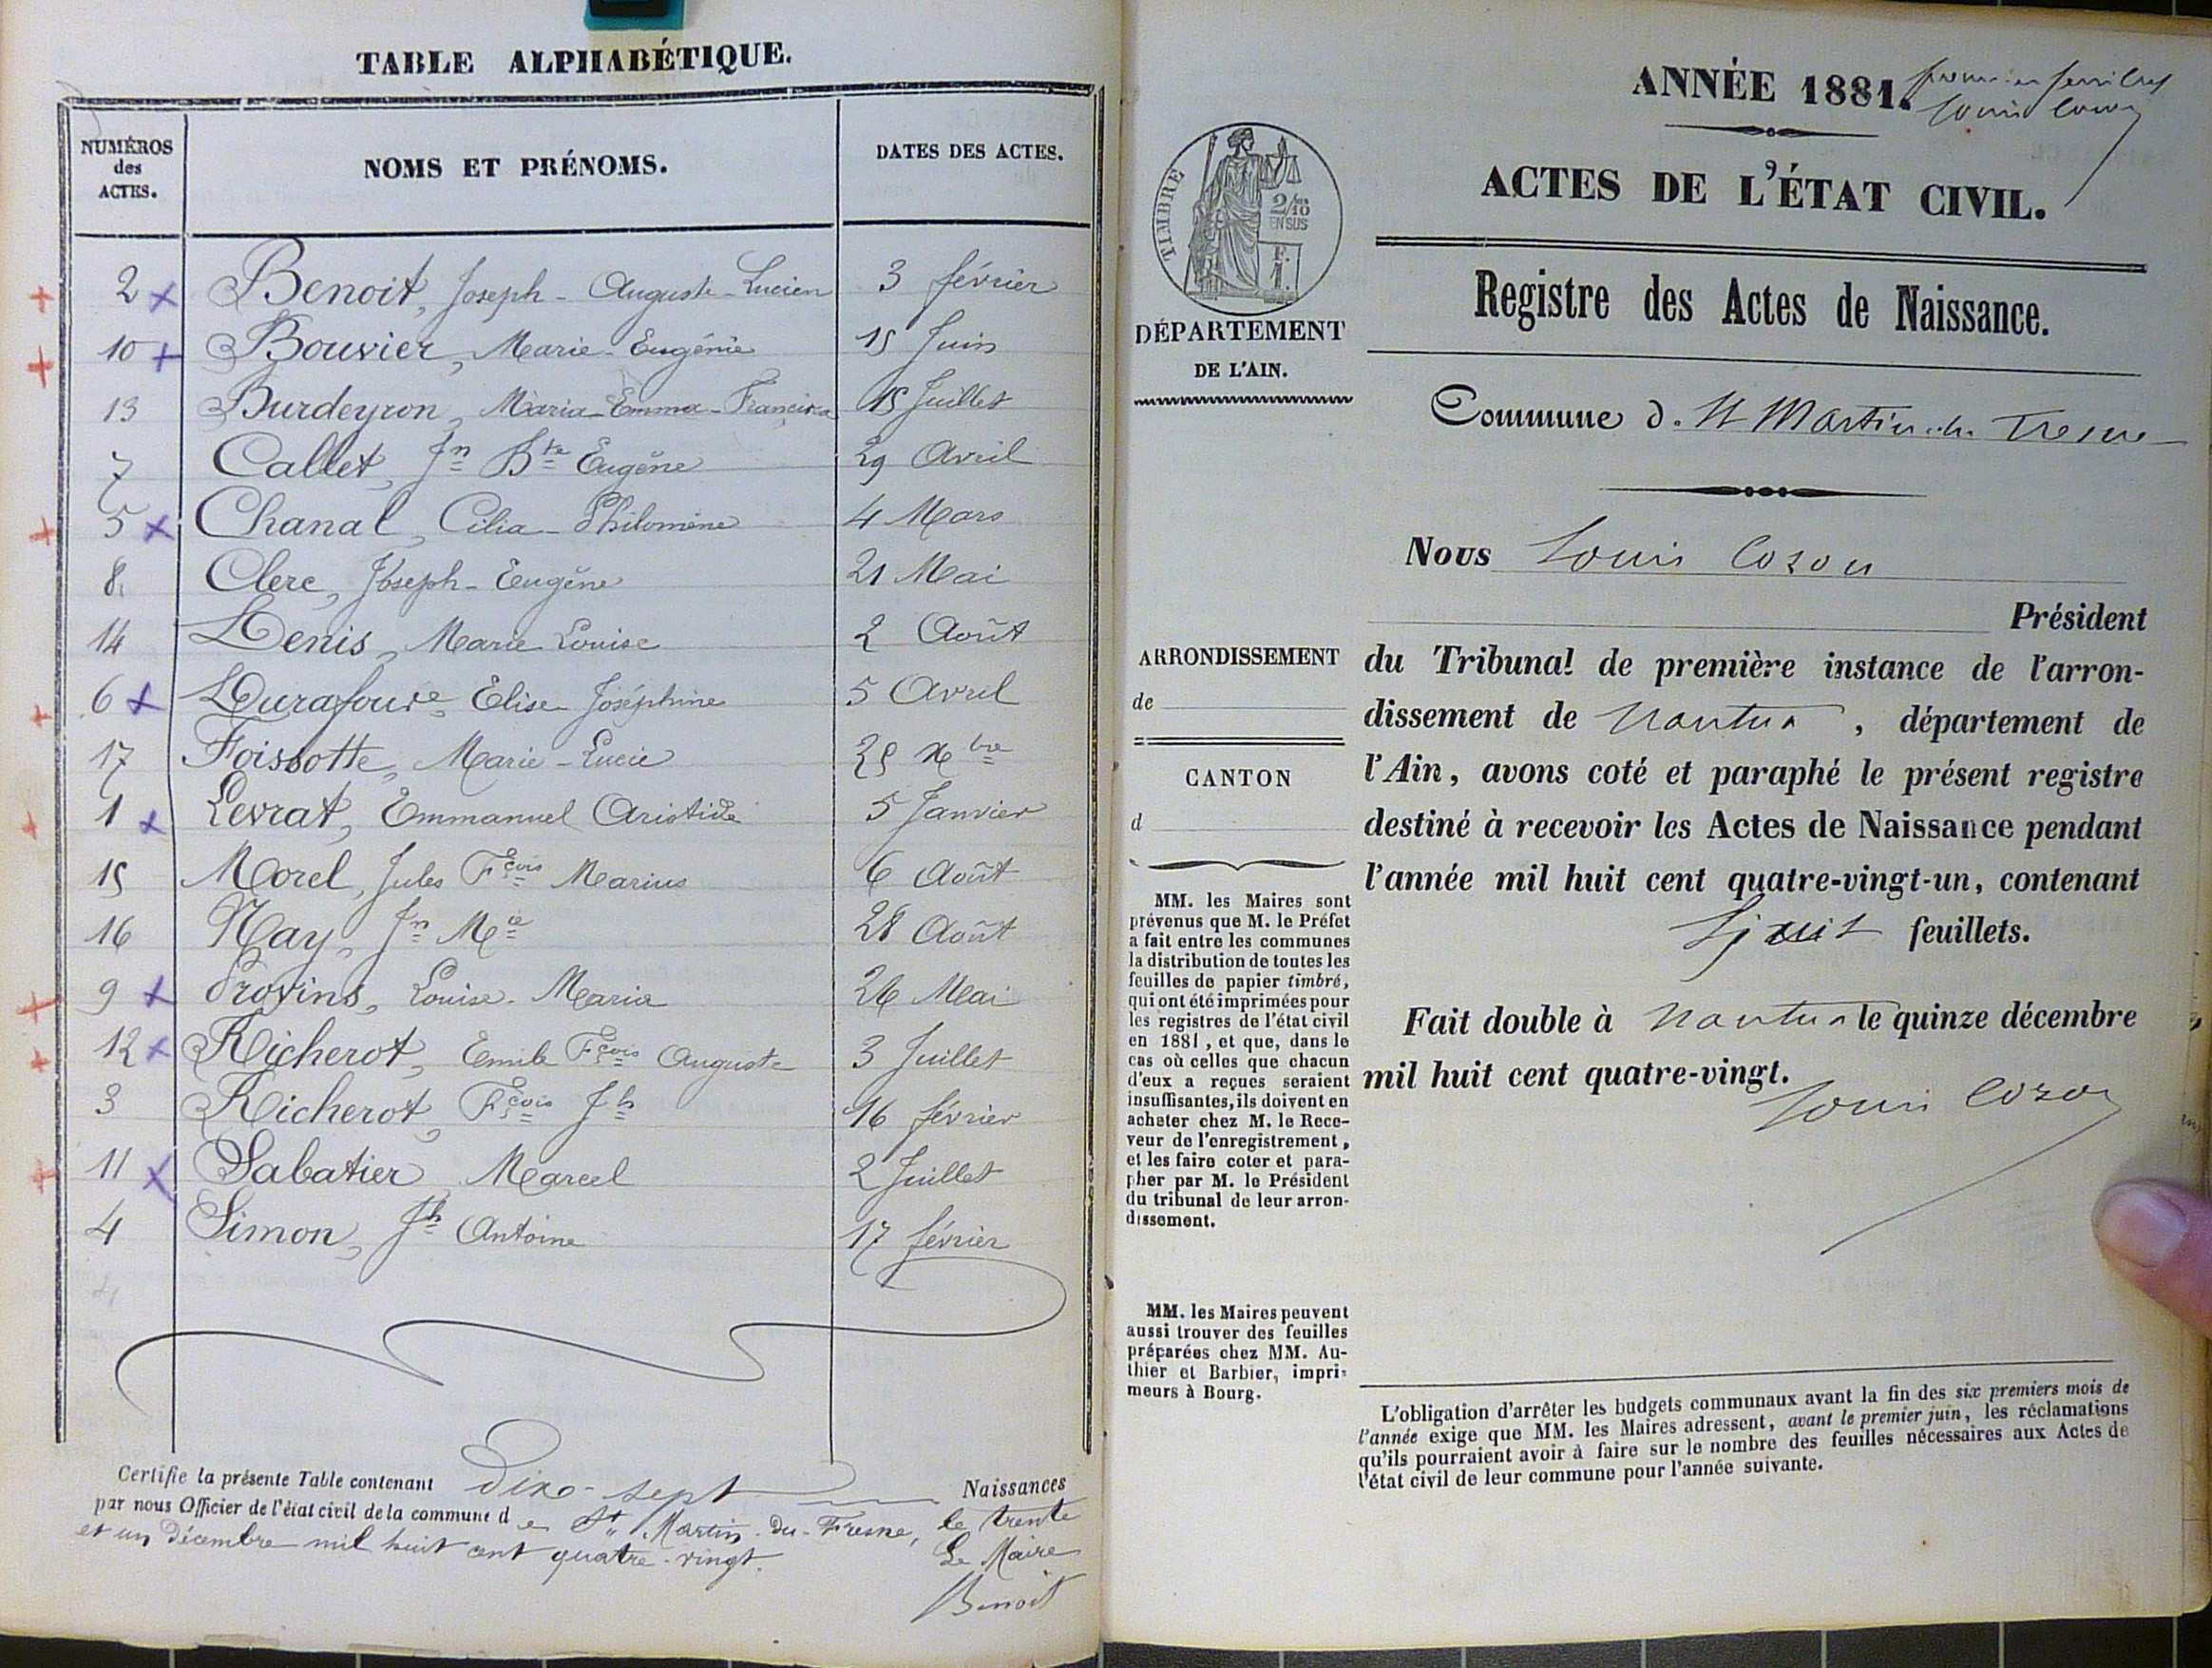 TABLE ALPHABÉTIQUE.
NUMÉROS des ACTES.
NOMS ET PRÉNOMS.
DATES DES ACTES.
2 Benoit, Joseph - Auguste - Lucien 3 février
10 Bouvier, Marie - Eugénie 15 Juin
13 Burdeyron, Maria - Emma - Francisca 15 Juillet
7 Callet, Jn Bte Eugène 29 Avril
5 Chanal, Célia - Philomène 4 Mars
8 Clerc, Joseph - Eugène 21 Mai
14 Denis, Marie Louise 2 Août
6 Durafour Elise Joséphine 5 Avril
17 Foissotte, Marie - Lucie 25 Xbre
1 Levrat, Emmanuel Aristide 5 Janvier
15 Morel, Jules Fçois Marius 6 Août
16 Nay, Jn Mie 28 Août
9 Provins, Louise - Maria 26 Mai
12 Richerot, Emile Fçois Auguste 3 Juillet
3 Richerot, Fçois Jh 16 février
11 Sabatier, Marcel 2 Juillet
4 Simon, Jh Antoine 17 février
Certifie la présente Table contenant Dix - sept Naissances
par nous Officier de l'état civil de la commune de St Martin - du - Fresne, le trente
et un Décembre mil huit cent quatre - vingt. Le Maire
Benoit
ANNÉE 1881.
premier
Louis Cozon
ACTES DE L'ÉTAT CIVIL.
TIMBRE
2/10 EN SUS
F. 1.
DÉPARTEMENT
DE L'AIN.
Registre des Actes de Naissance.
Commune d. St Martin du Fresne
Nous Louis Cozon
Président
du Tribunal de première instance de l'arron-
dissement de Nantua, département de
l'Ain, avons coté et paraphé le présent registre
destiné à recevoir les Actes de Naissance pendant
l'année mil huit cent quatre-vingt-un, contenant
feuillets.
Fait double à Nantua le quinze décembre
mil huit cent quatre-vingt.
Louis Cozon
ARRONDISSEMENT
de
CANTON
d
MM. les Maires sont
prévenus que M. le Préfet
a fait entre les communes
la distribution de toutes les
feuilles de papier timbré,
qui ont été imprimées pour
les registres de l'état civil
en 1881, et que, dans le
cas où celles que chacun
d'eux a reçues seraient
insuffisantes, ils doivent en
acheter chez M. le Rece-
veur de l'enregistrement,
et les faire coter et para-
pher par M. le Président
du tribunal de leur arron-
dissement.
MM. les Maires peuvent
aussi trouver des feuilles
préparées chez MM. Au-
thier et Barbier, impri-
meurs à Bourg.
L'obligation d'arrêter les budgets communaux avant la fin des six premiers mois de
l'année exige que MM. les Maires adressent, avant le premier juin, les réclamations
qu'ils pourraient avoir à faire sur le nombre des feuilles nécessaires aux Actes de
l'état civil de leur commune pour l'année suivante.